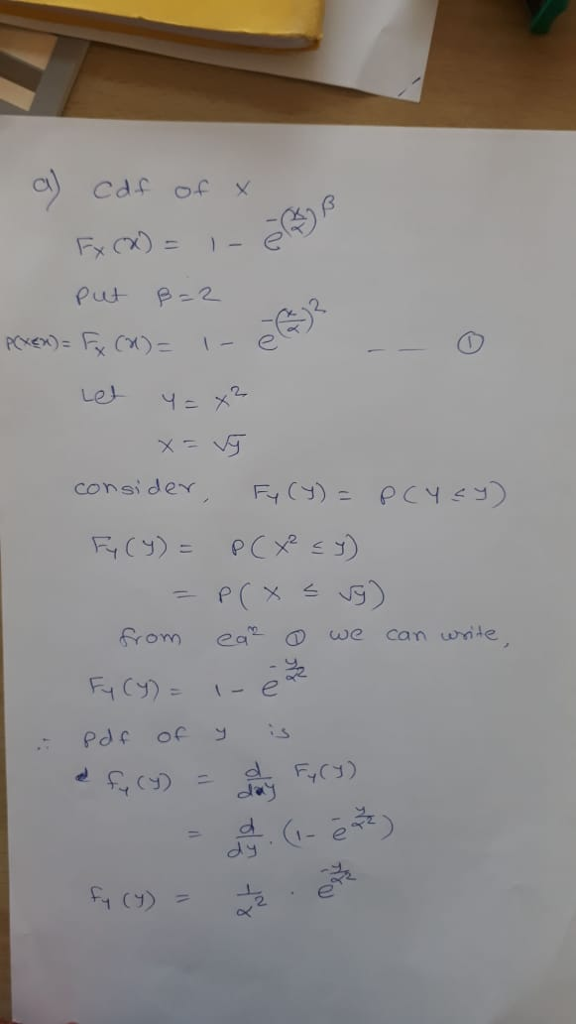 a) Cdf of x
Fx(x) = 1 - e^{-(x/α)^β}
Put β=2
P(X≤x) = Fx(x) = 1 - e^{-(x/α)^2} -- ①
Let Y = x²
x = √y
consider, Fy(y) = P(Y ≤ y)
Fy(y) = P(X² ≤ y)
= P(X ≤ √y)
from eqⁿ ① we can write,
Fy(y) = 1 - e^{-y/α²}
∴ Pdf of y is
fy(y) = d/dy Fy(y)
= d/dy . (1 - e^{-y/α²})
fy(y) = 1/α² . e^{-y/α²}